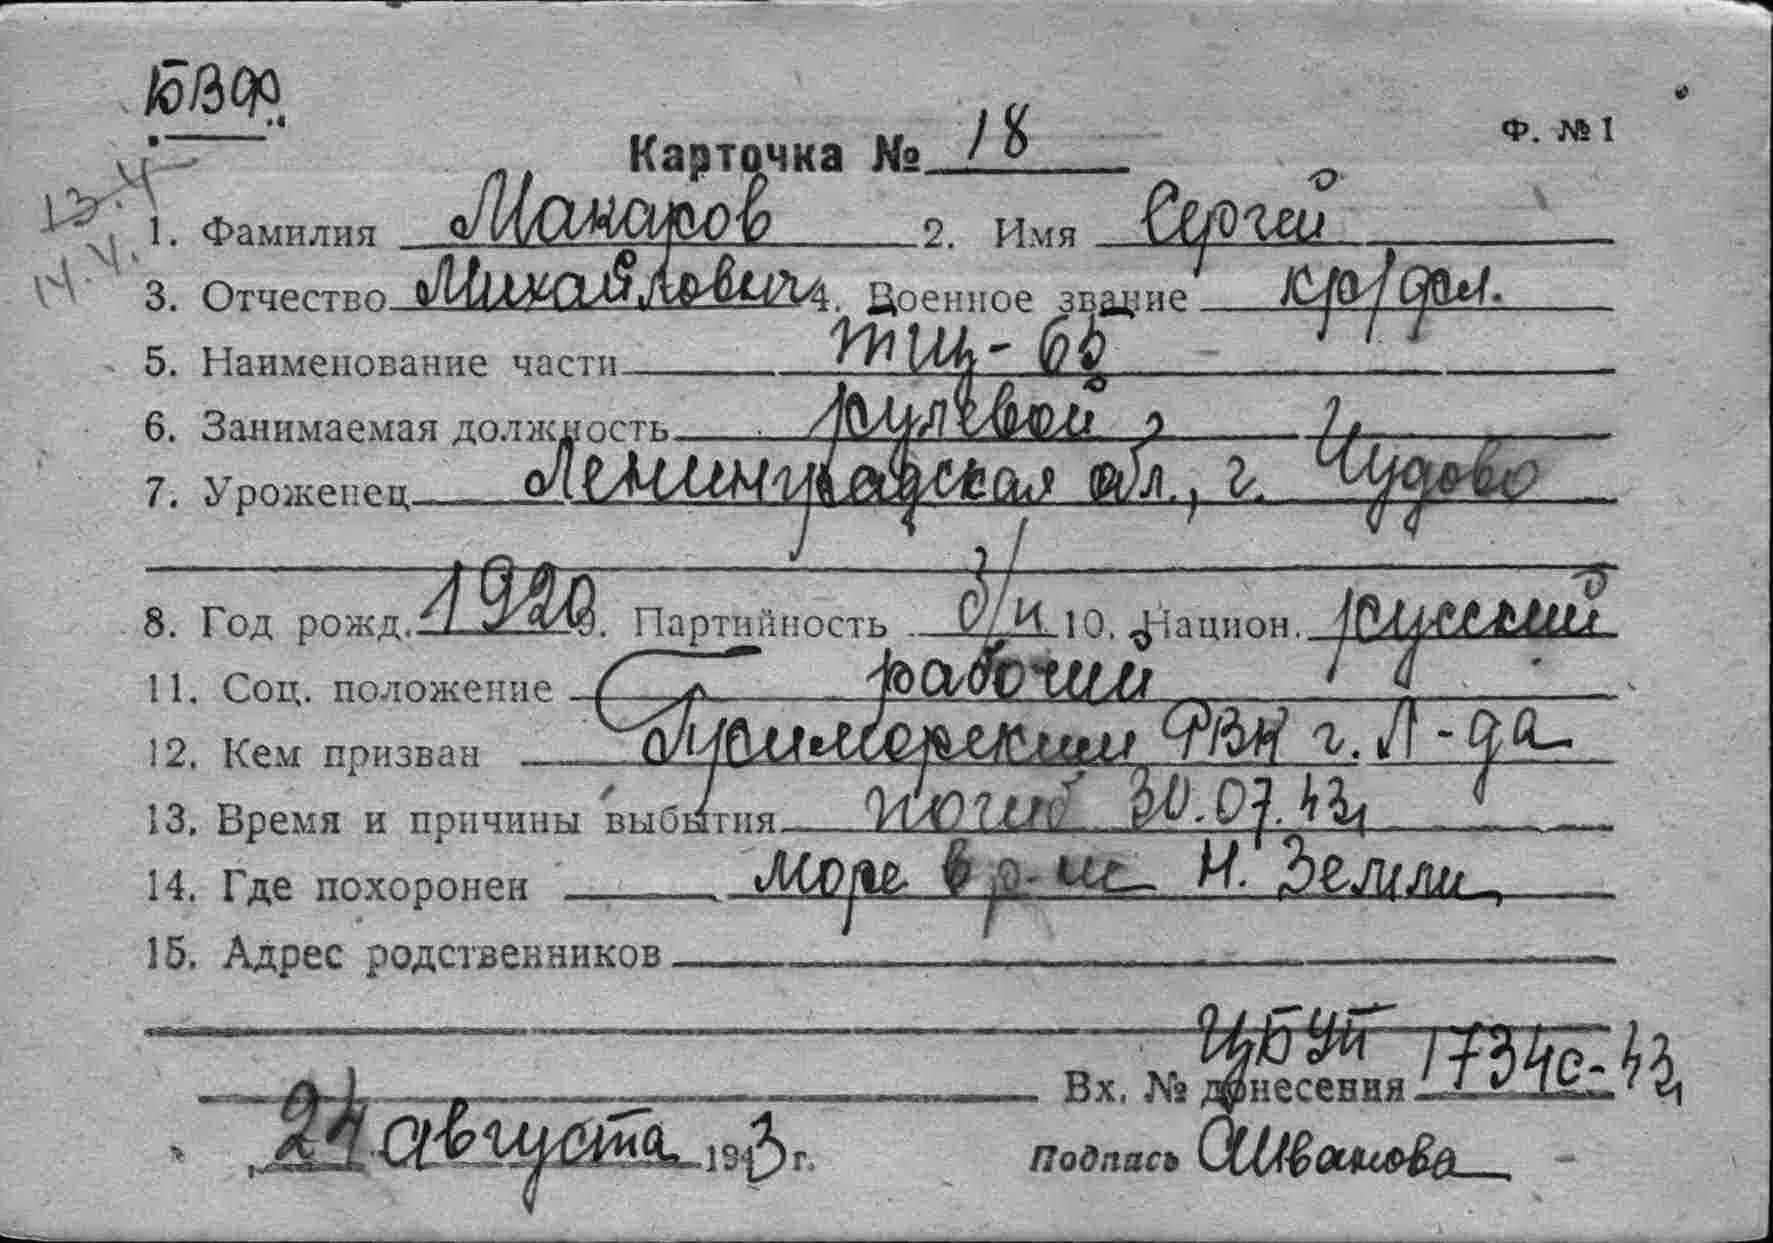 БВФ
Карточка № 18
Ф. № 1
13.4
14.4.
1. Фамилия Макаров 2. Имя Сергей
3. Отчество Михайлович 4. Военное звание кр/фл.
5. Наименование части тщ-65
6. Занимаемая должность рулевой
7. Уроженец Ленинградская обл., г. Чудово
8. Год рожд. 1920 9. Партийность б/п 10. Национ. русский
11. Соц. положение рабочий
12. Кем призван Приморским РВК г. Л-да
13. Время и причины выбытия погиб 30.07.43
14. Где похоронен море в р-не Н. Земли
15. Адрес родственников
ЦБУП
Вх. № донесения 1734с-43
24 августа 1943 г.
Подпись АИванова